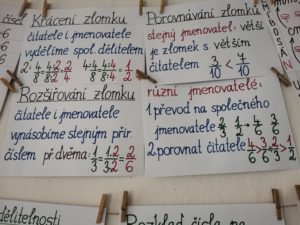 čísel
Krácení zlomku
čitatele i jmenovatele
vydělíme spol. dělitelem
Rozšiřování zlomku
čitatele i jmenovatele
vynásobíme stejným přir.
číslem př dvěma: 1/3 = 1·2/3·2 = 2/6
Porovnávání zlomků
stejný jmenovatel: větší
je zlomek s větším
čitatelem 3/10 < 7/10
různí jmenovatelé:
1. převod na společného
jmenovatele 2/3 1/2 → 4/6 3/6
2. porovnat čitatele 4/6 > 3/6 2/3 > 1/2
dělitelnosti
Rozklad čísla na